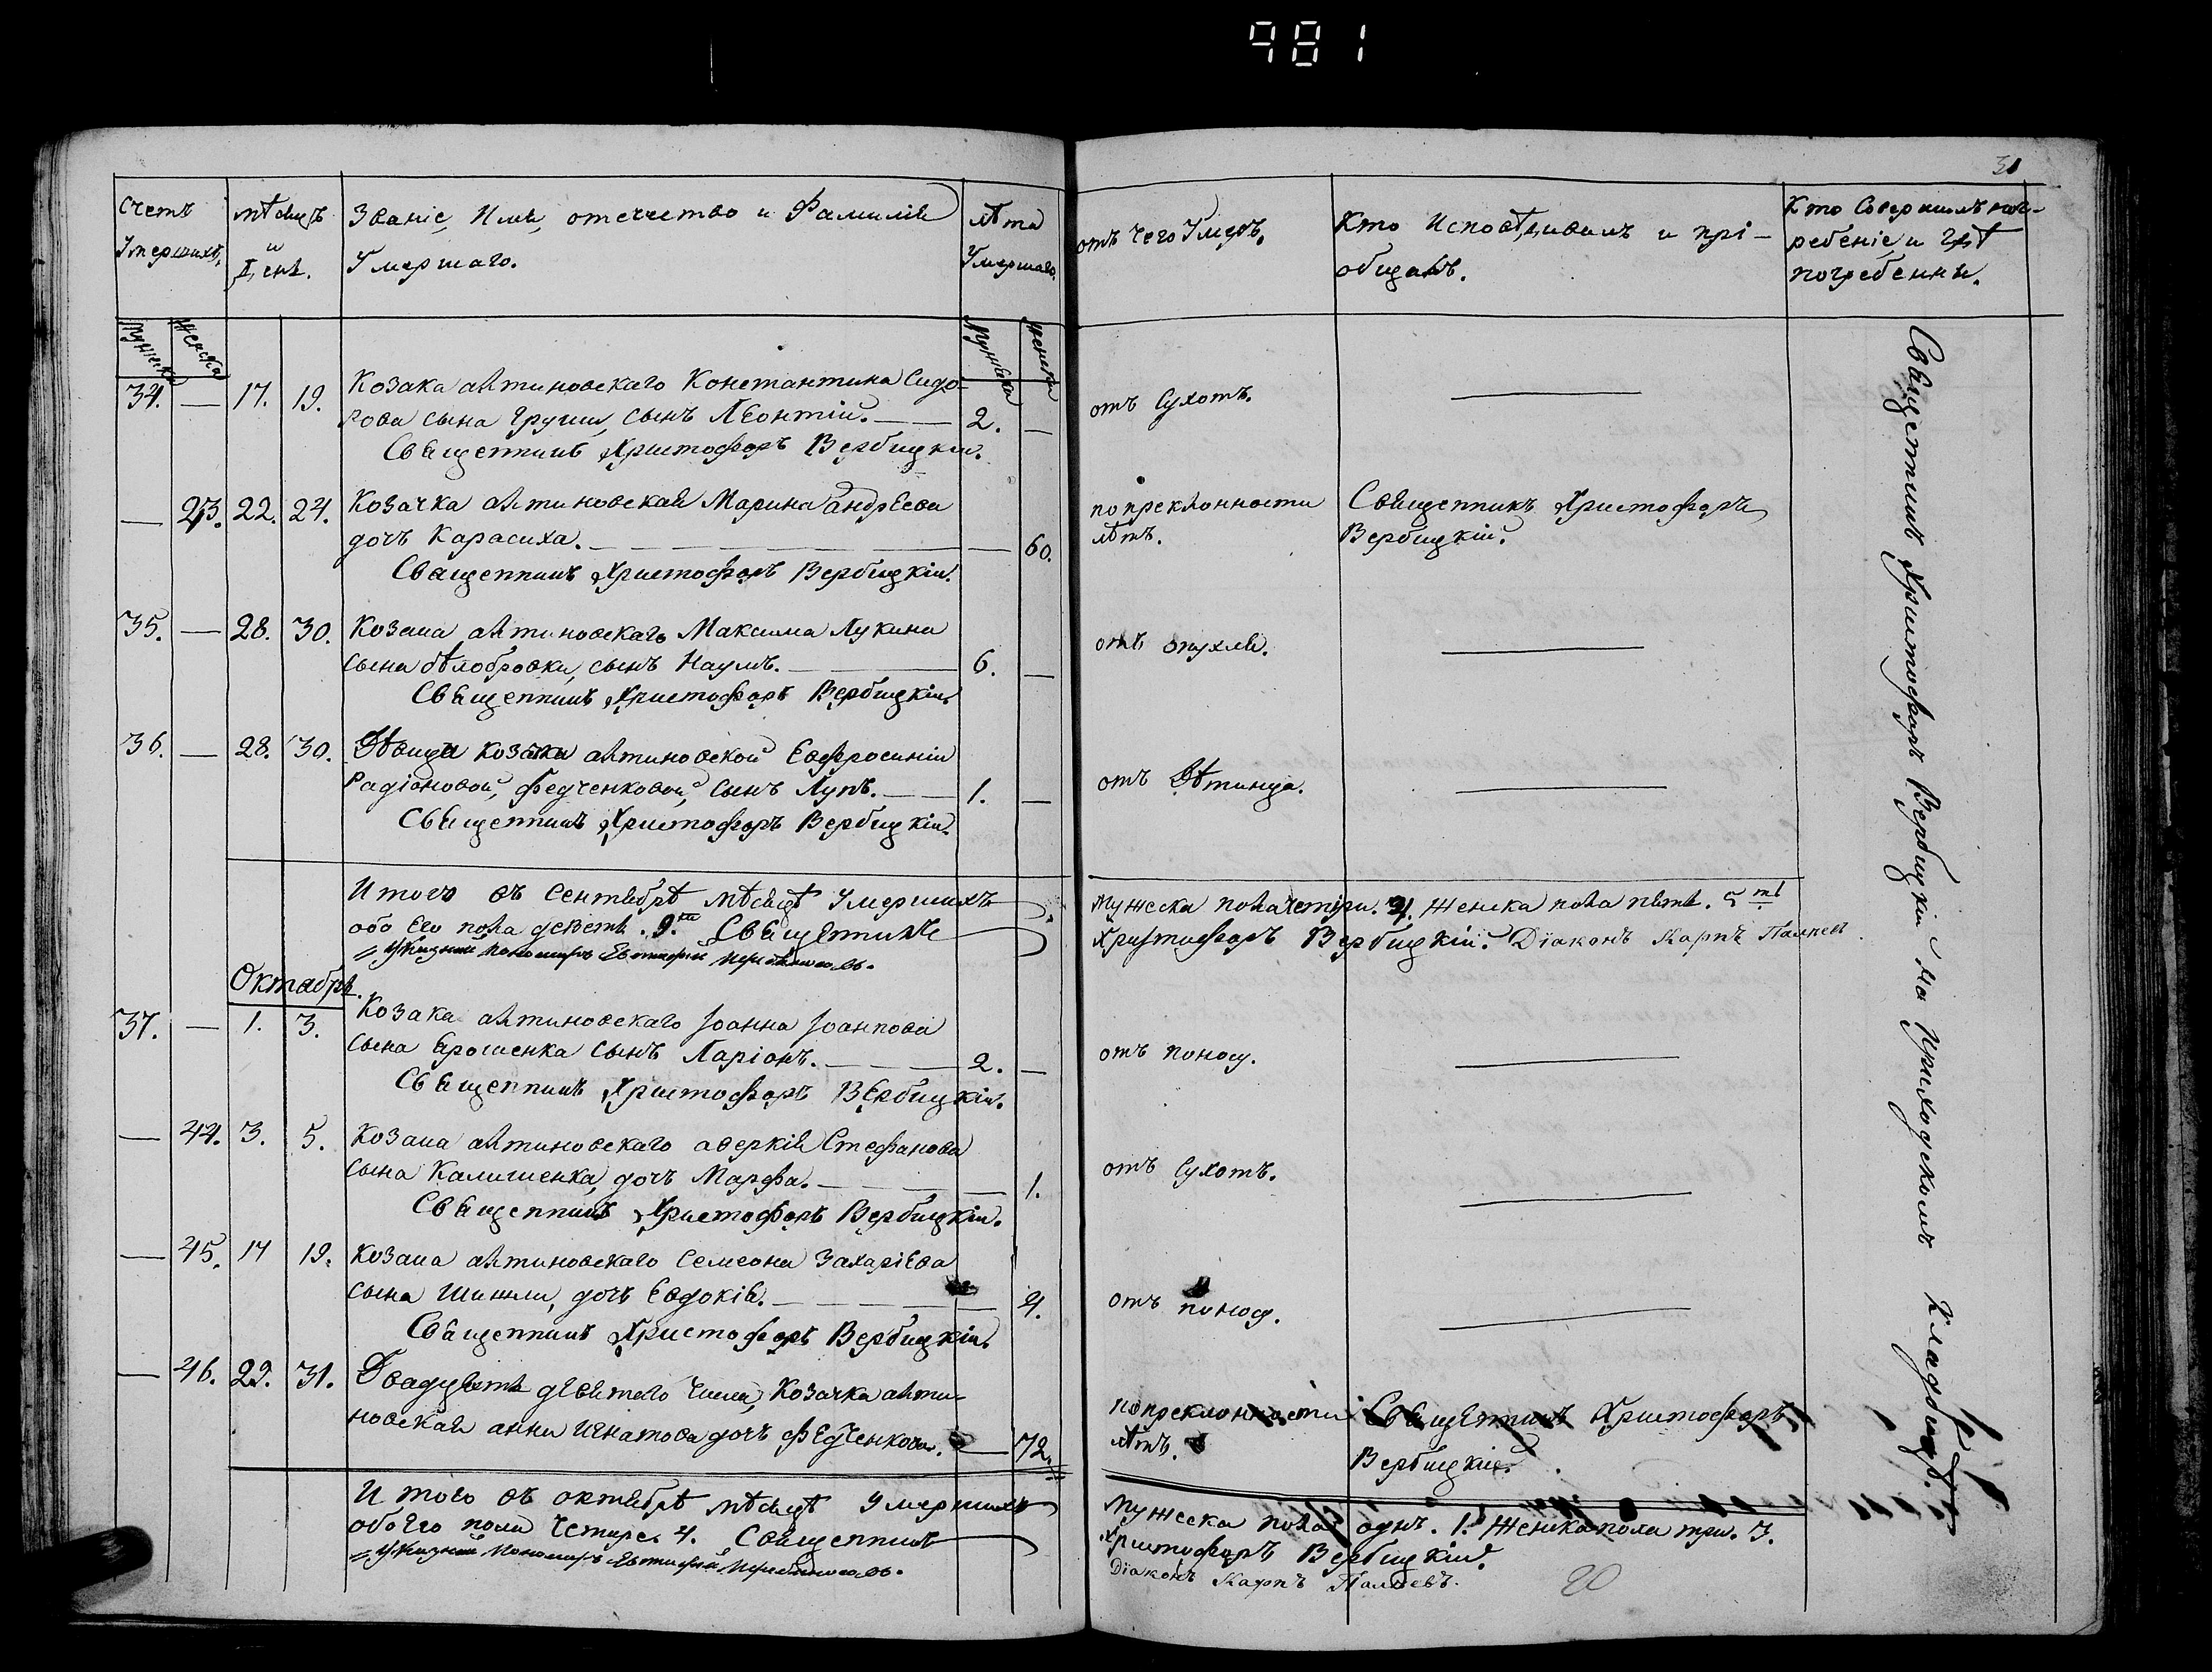 981
31
Счетъ
Умершихъ.
мѣсяцъ
и
День.
Званіе, Имя, отечество и Фамилія
Умершаго.
лѣта
Умершаго.
отъ чего Умеръ.
Кто Исповѣдывалъ и прі-
общалъ.
Кто Совершилъ пог-
ребеніе, и гдѣ
погребенны.
Мужеска
Женска
Мужеска
Женска
34. — 17. 19. Козака алтиновскаго Константина Сидо-
рова сына Груши, сынъ Леонтій. — 2. — отъ Сухотъ. —
Священникъ Христофоръ Вербицкій.
— 43. 22. 24. Козачка алтиновская Марина Андреева
дочъ Карасиха. — 60. по преклонности лѣтъ. Священникъ Христофоръ Вербицкій.
Священникъ Христофоръ Вербицкій.
35. — 28. 30. Козака алтиновскаго Максима Лукина
сына бѣлобровки, сынъ Наумъ. — 6. — отъ опухли. —
Священникъ Христофоръ Вербицкій.
36. — 28. 30. Дѣвици козачки алтиновской Евфросиніи
Радіоновой, Федченковой, сынъ Лупъ. — 1. — отъ Дѣтинца. —
Священникъ Христофоръ Вербицкій.
Итого въ Сентябрѣ мѣсяцѣ Умершихъ Мужеска пола четыри. 4. Женска пола пять. 5ть
обоего пола девять. 9. Священникъ Христофоръ Вербицкій. Діаконъ Карпъ
Пономарь
Октябрь.
37. — 1. 3. Козака алтиновскаго Іоанна Іоаннова
сына Ярошенка сынъ Ларіонъ. — 2. — отъ поносу. —
Священникъ Христофоръ Вербицкій.
— 44. 3. 5. Козака алтиновскаго аверкія Стефанова
сына Калишенка, дочъ Марфа. — 1. отъ Сухотъ. —
Священникъ Христофоръ Вербицкій.
— 45. 17 19. Козака алтиновскаго Семеона Захаріева
сына дочъ Евдокія. — 4. отъ поносу. —
Священникъ Христофоръ Вербицкій.
— 46. 29. 31. Двадцять девятого числа, Козачка алти-
новская анна Игнатова дочъ Федченкова. — 72. по преклонности лѣтъ. Священникъ Христофоръ Вербицкій.
Итого въ октябрѣ мѣсяцѣ Умершихъ Мужеска пола однъ. 1. Женска пола три. 3.
обоего пола Четыре. 4. Священникъ Христофоръ Вербицкій.
Пономарь
Діаконъ Карпъ
20
Священникъ Христофоръ Вербицкій на Приходскомъ Кладбищѣ.